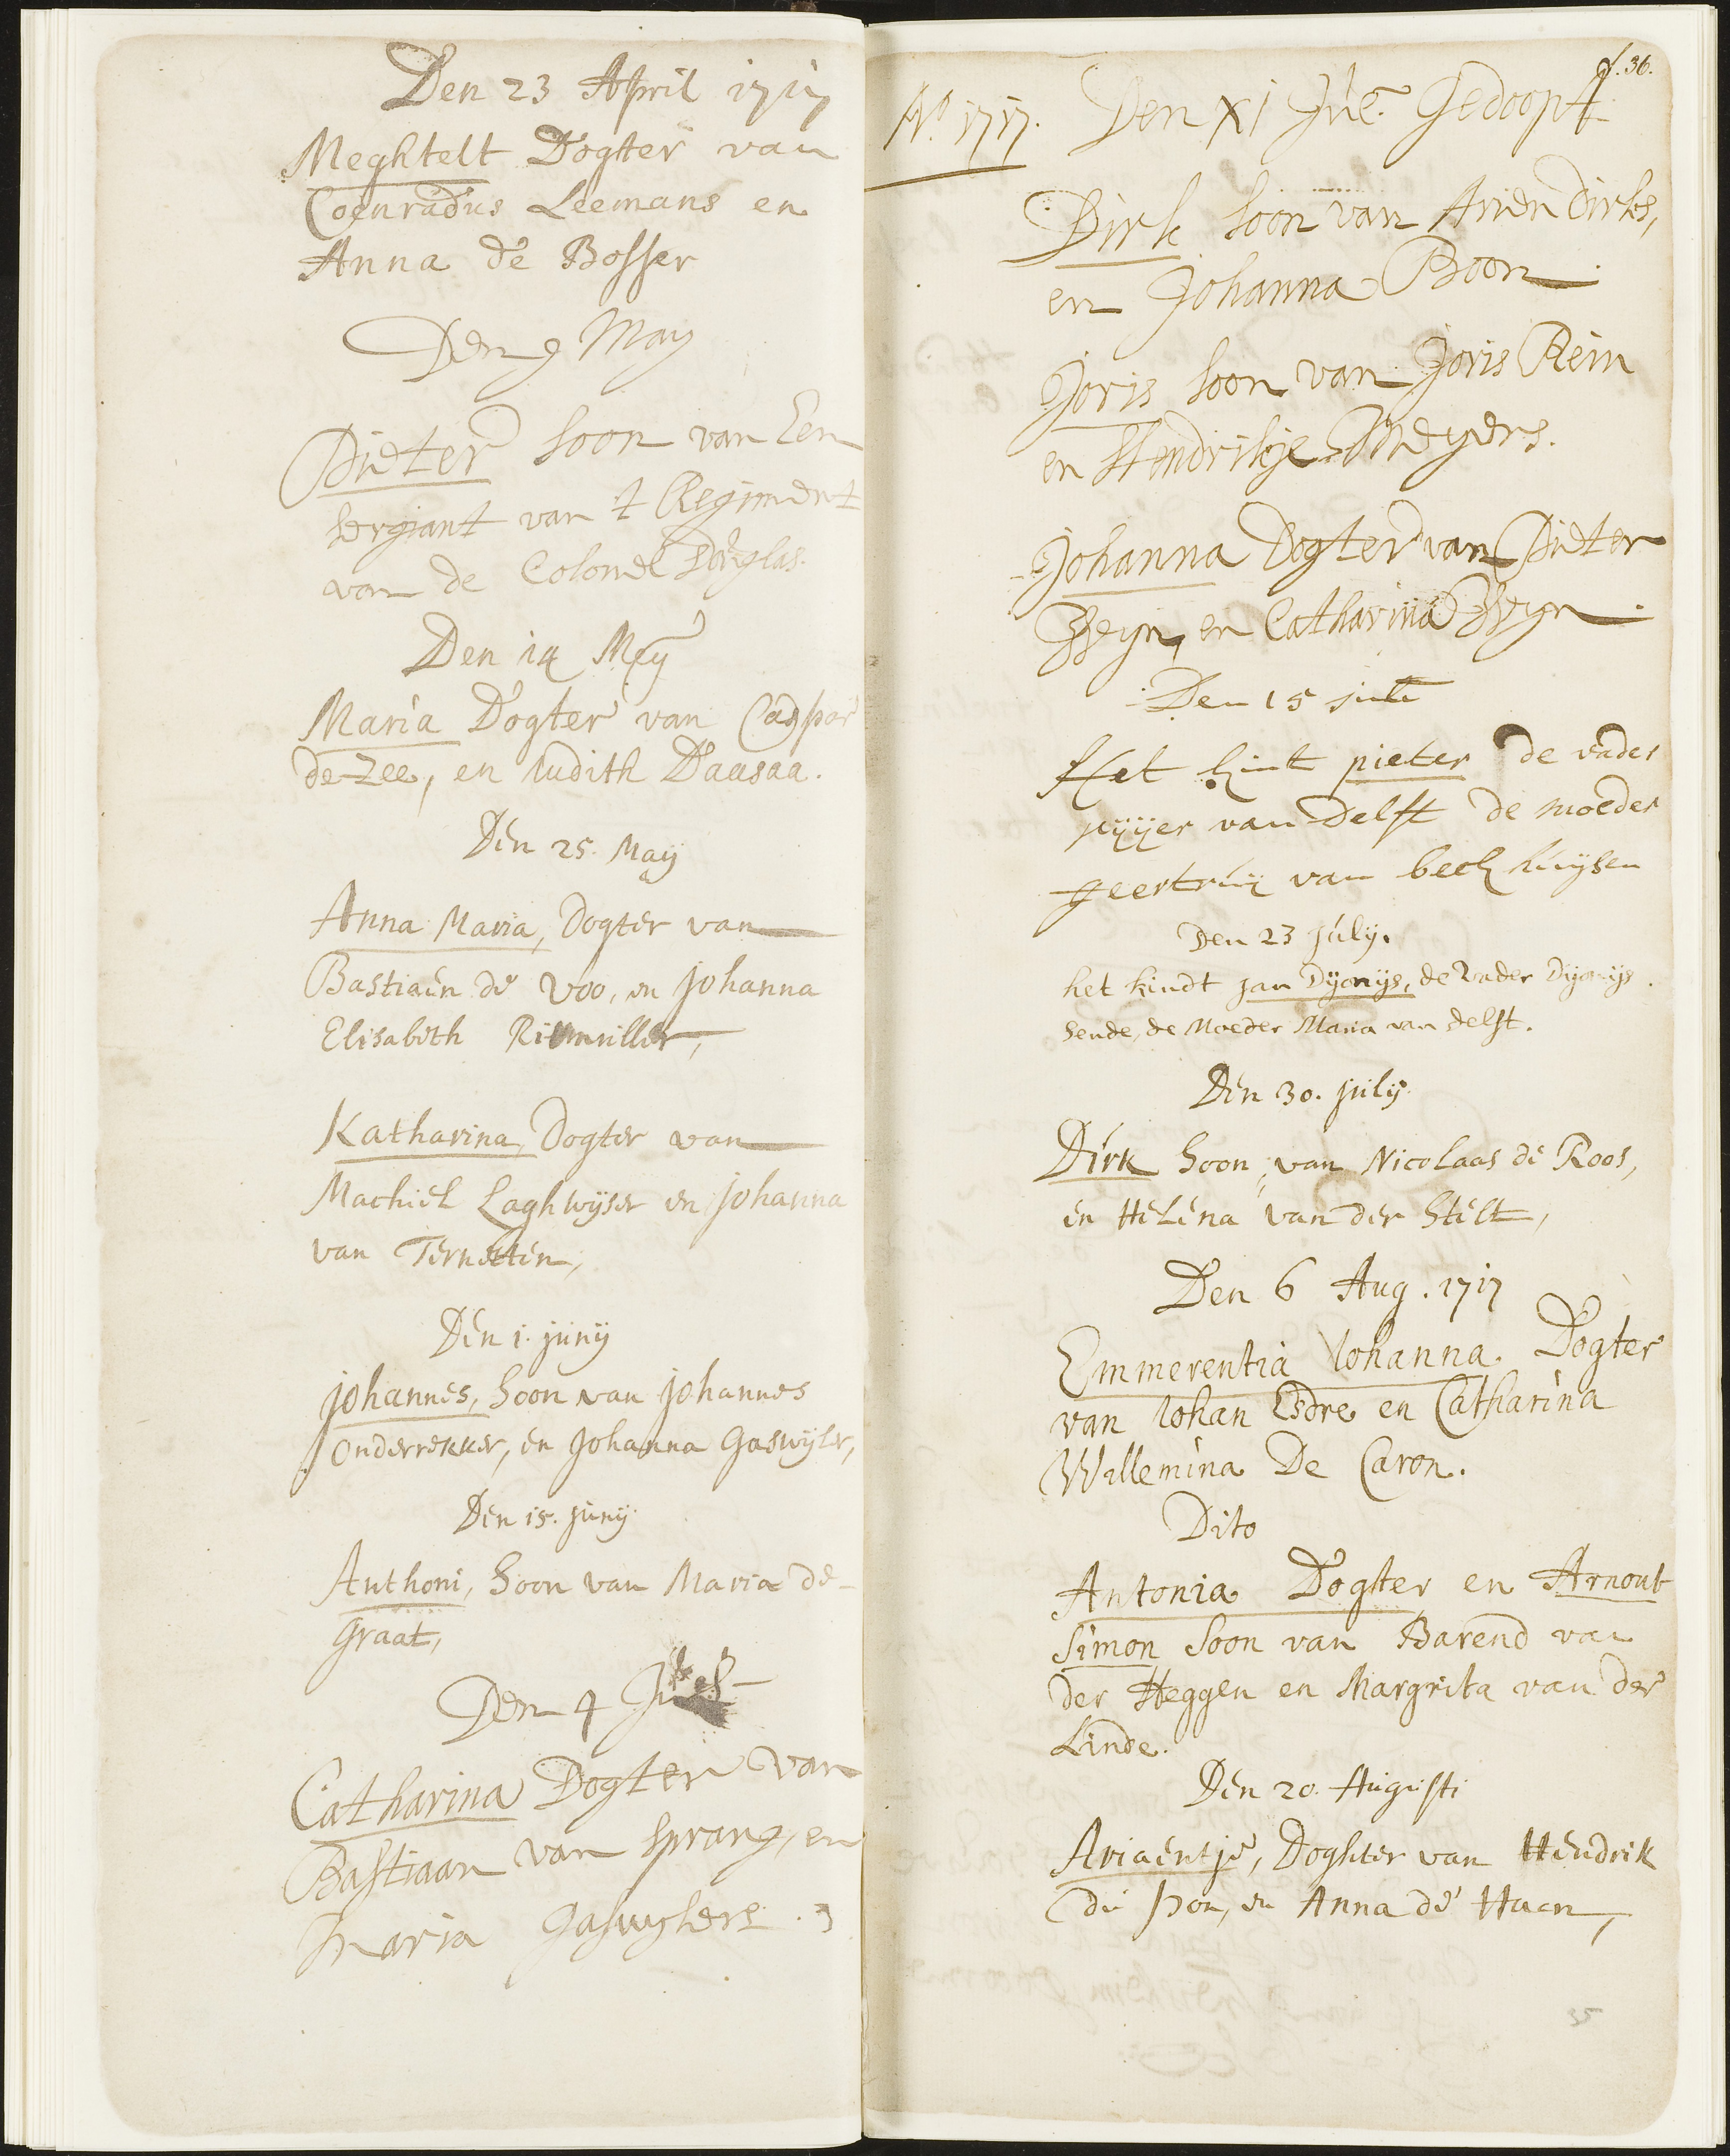 Den 23 April 1717
Meghtelt Dogter van
Coenradus Leemans en
Anna de Bosser
Den 9 May
Pieter soon van Een
sergiant van t Regiment
van de Colonel
Den 14 Mey
Maria Dogter van Caspar
de Zee, en Iudith Daasaa.
Den 25. May
Anna Maria, Dogter van
Bastiaen de Voo, en Johanna
Elisabeth
Katharina, Dogter van
Machiel Laghwyser en Johanna
van Ternetten,
Den 1. junij
johannes, Soon van johannes
Onderrekker, en Johanna Gaswyler,
Den 15. junij
Anthoni, Soon van Maria de-
Graat,
Den 4
Catharina Dogter van
Bastiaan van Sprang, en
Maria
f. 36.
Ao 1717. Den XI Gedoopt
Dirk Soon van Arien Dirks,
en Johanna Boon
Joris Soon van Joris Rein
en Hendrikje Meyers.
Johanna Dogter van Pieter
en Catharina
Den 15
Het kint pieter de vader
van Delft de moeder
geertruij van beekhuijsen
Den 23 july.
het kindt jan Dyonijs, de Vader Dijonijs
Sende, de Moeder Maria van delft.
Den 30. julij
Dirk Soon, van Nicolaas de Roos,
en Helena van der Stelt,
Den 6 Aug. 1717
Emmerentia Iohanna. Dogter
van Iohan Esdre en Catharina
Willemina De Caron.
Dito
Antonia Dogter en Arnout
Simon Soon van Barend van
der Heggen en Margrita van der
Linde.
Den 20. Augusti
Ariaentje, Doghter van Hendrik
du pon, en Anna de Haan,
35